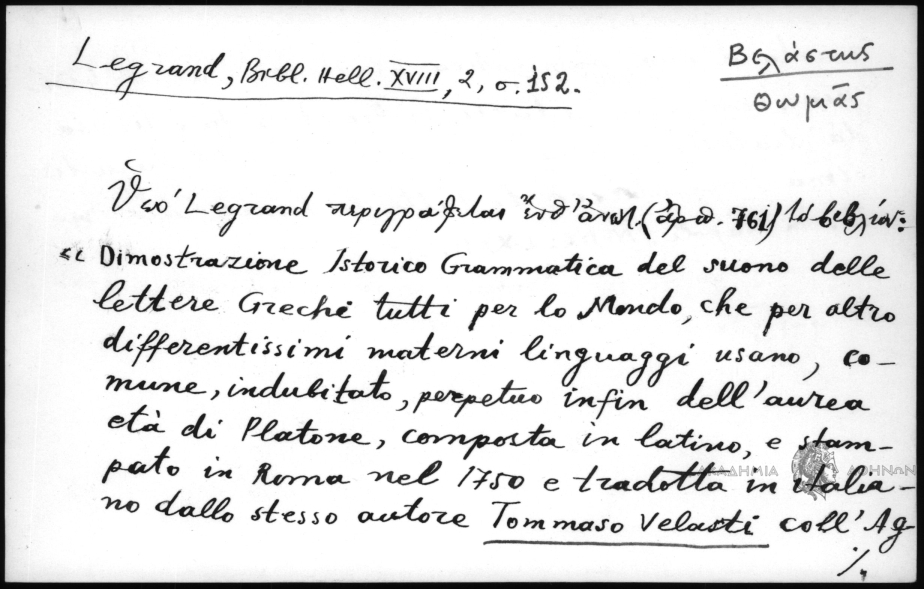 Legrand, Bibl. Hell. XVIII, 2, σ. 152.
Βελάστης
Θωμᾶς
Ὑπό Legrand περιγράφεται ἔνθ' ἀνωτ. (ἀριθ. 761) τό βιβλίον:
«Dimostrazione Istorico Grammatica del suono delle
lettere Greche tutti per lo Mondo, che per altro
differentissimi materni linguaggi usano, co-
mune, indubitato, perpetuo infin dell'aurea
età di Platone, composta in latino, e stam-
pato in Roma nel 1750 e tradotta in italia-
no dallo stesso autore Tommaso Velasti coll' Ag
./.
ΑΚΑΔΗΜΙΑ ΑΘΗΝΩΝ